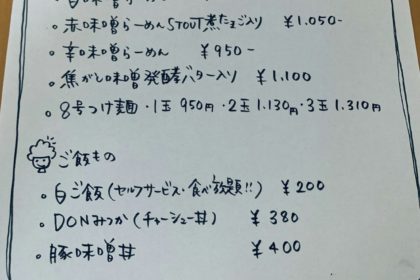 ・赤味噌らーめんSTOUT煮たまご入り ¥1,050-
・辛味噌らーめん ¥950-
・焦がし味噌発酵バター入り ¥1,100
・8号つけ麺・1玉 950円・2玉 1,130円・3玉 1,310円
ご飯もの
・白ご飯(セルフサービス・食べ放題!!) ¥200
・DONみつか(チャーシュー丼) ¥380
・豚味噌丼 ¥400